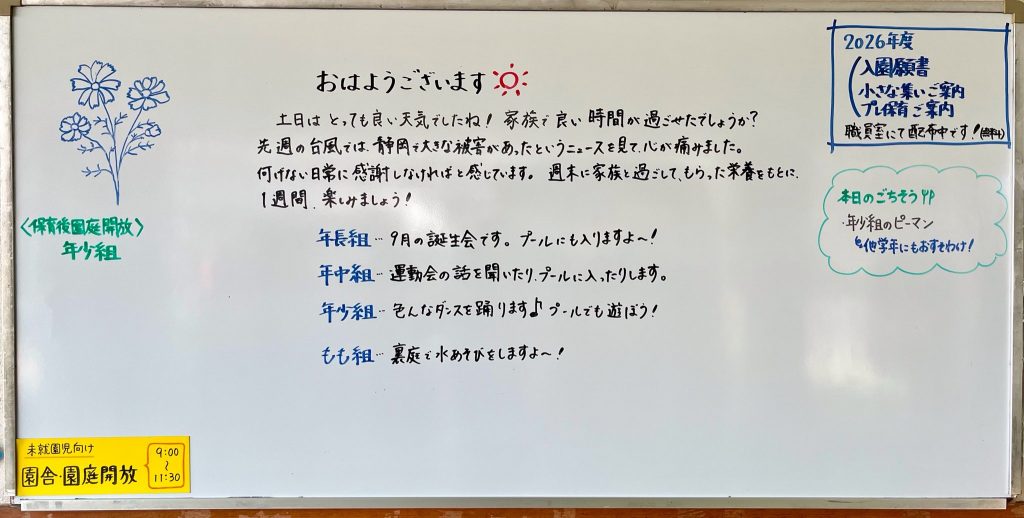 おはようございます
土日は とっても良い天気でしたね！ 家族で良い時間が過ごせたでしょうか？
先週の台風では、静岡で大きな被害があったというニュースを見て、心が痛みました。
何げない日常に感謝しなければと感じています。 週末に家族と過ごして、もらった栄養をもとに、
1週間、楽しみましょう！
年長組… 9月の誕生会です。プールにも入りますよ〜！
年中組… 運動会の話を聞いたり、プールに入ったりします。
年少組… 色んなダンスを踊ります♪ プールでも遊ぼう！
もも組… 裏庭で水あそびをしますよ〜！
〈保育後園庭開放〉
年少組
未就園児向け
園舎・園庭開放
9:00
〜
11:30
2026年度
入園願書
小さな集いご案内
プレ保育ご案内
職員室にて配布中です！(無料)
本日のごちそう
・年少組のピーマン
他学年にもおすそわけ！